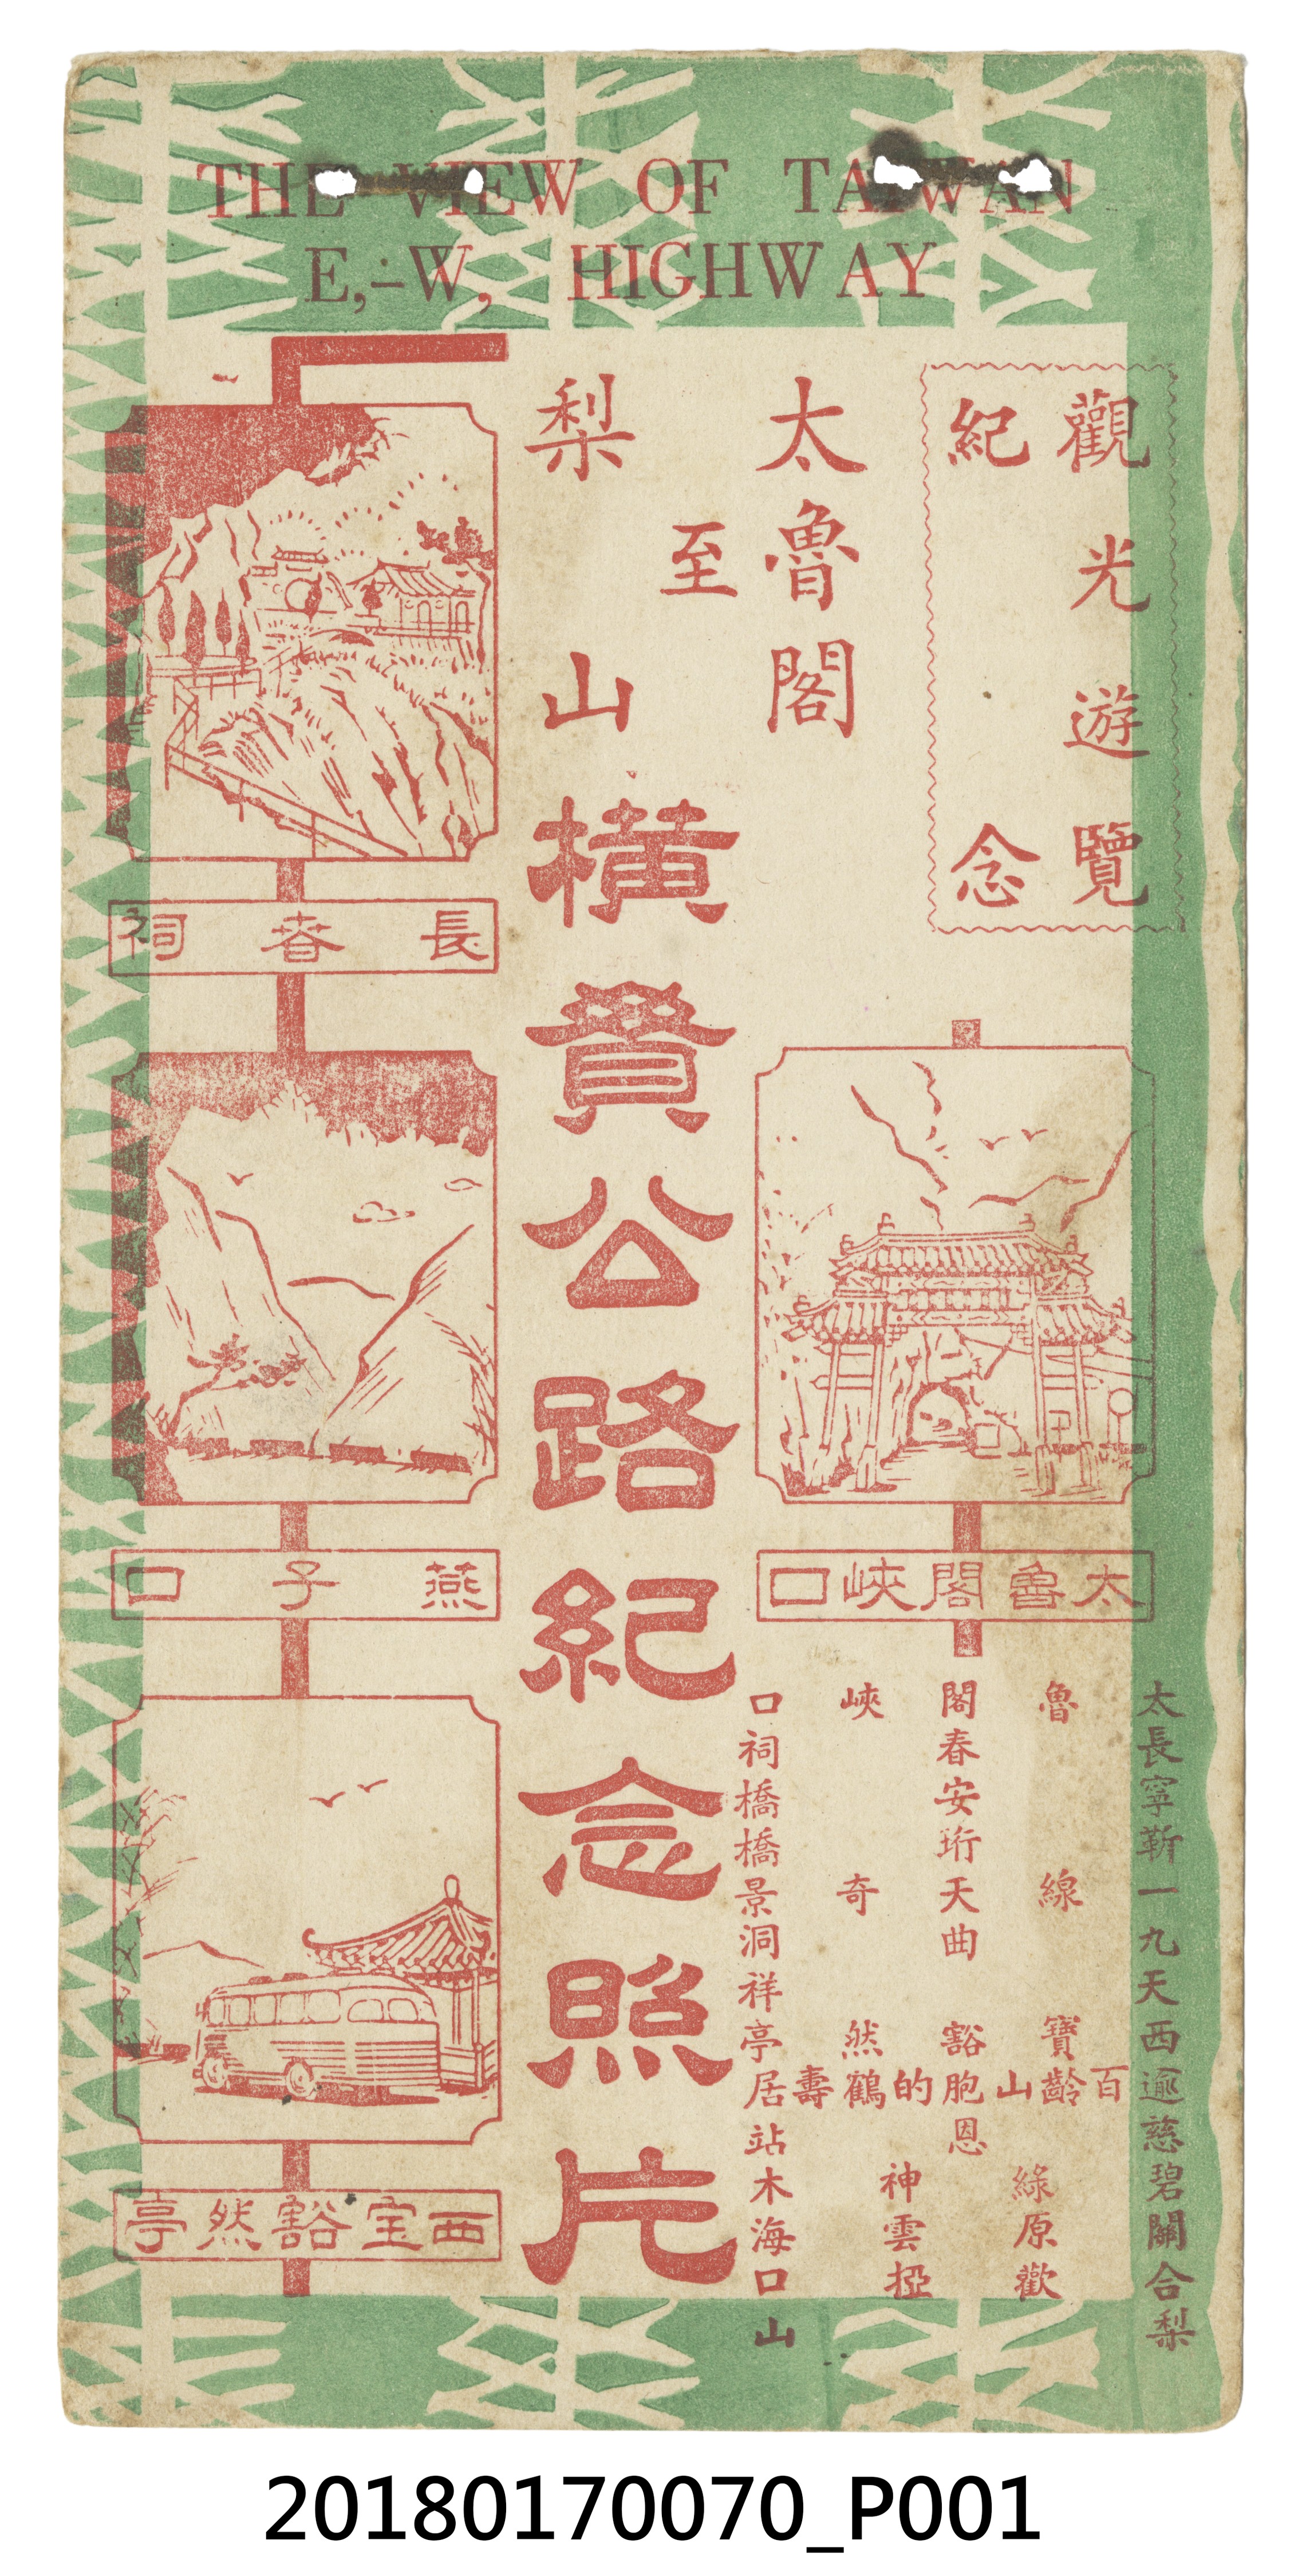 THE VIEW OF TAIWAN
E,-W, HIGHWAY
觀光遊覽
紀念
太魯閣
至
梨山
橫貫公路紀念照片
長春祠
燕子口
西宝豁然亭
太魯閣峽口
太魯閣峽口
長春祠
寧安橋
靳珩橋
一線天奇景
九曲洞
天祥
西寶豁然亭
逾百齡山胞的鶴壽居
慈恩站
碧綠神木
關原雲海
合歡埡口
梨山
20180170070_P001